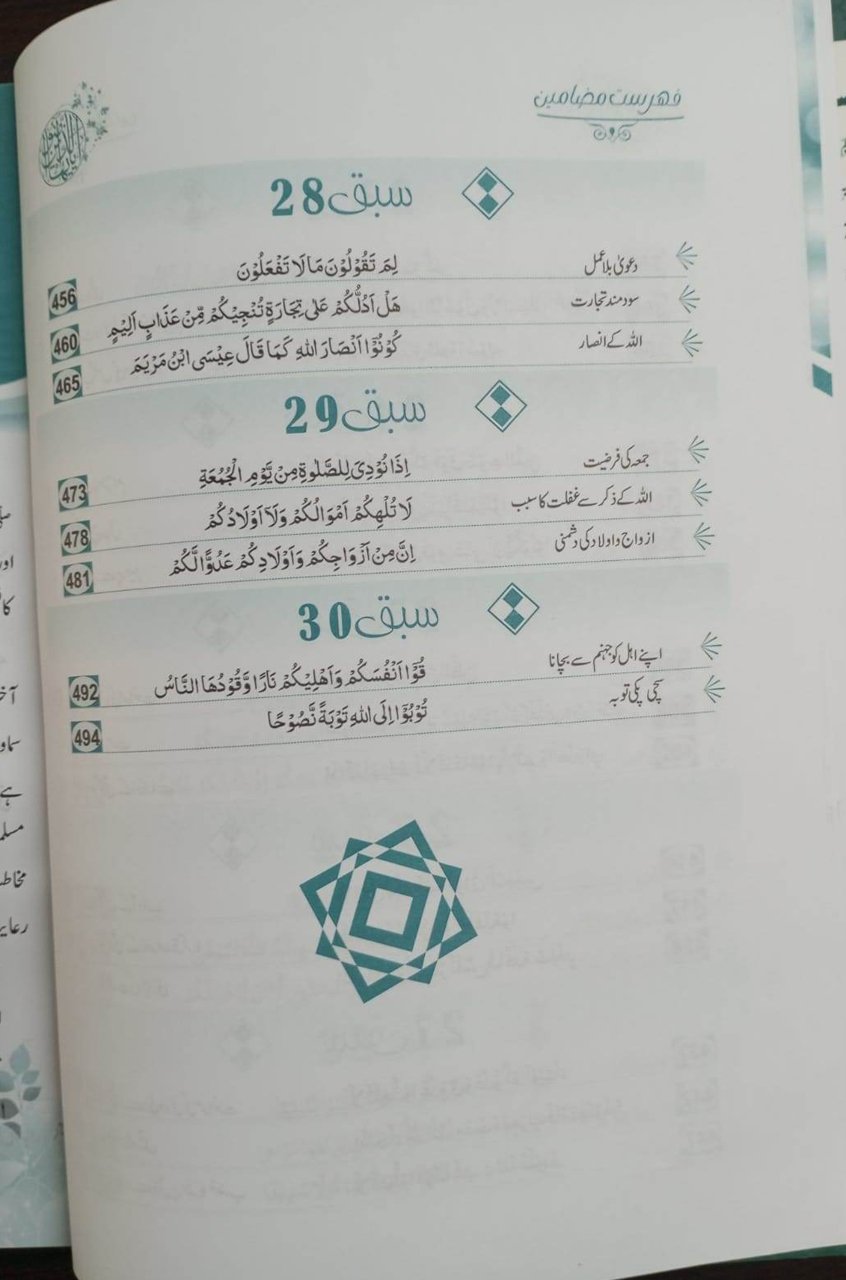 فہرست مضامین
سبق 28
دعویٰ بلا عمل لِمَ تَقُوْلُوْنَ مَا لَا تَفْعَلُوْنَ 456
سود مند تجارت هَلْ اَدُلُّكُمْ عَلٰى تِجَارَةٍ تُنْجِيْكُمْ مِّنْ عَذَابٍ اَلِيْمٍ 460
اللہ کے انصار كُوْنُوْٓا اَنْصَارَ اللهِ كَمَا قَالَ عِيْسَى ابْنُ مَرْيَمَ 465
سبق 29
جمعہ کی فرضیت اِذَا نُوْدِىَ لِلصَّلٰوةِ مِنْ يَّوْمِ الْجُمُعَةِ 473
اللہ کے ذکر سے غفلت کا سبب لَا تُلْهِكُمْ اَمْوَالُكُمْ وَلَآ اَوْلَادُكُمْ 478
ازواج و اولاد کی دشمنی اِنَّ مِنْ اَزْوَاجِكُمْ وَاَوْلَادِكُمْ عَدُوًّا لَّكُمْ 481
سبق 30
اپنے اہل کو جہنم سے بچانا قُوْٓا اَنْفُسَكُمْ وَاَهْلِيْكُمْ نَارًا وَّقُوْدُهَا النَّاسُ 492
سچی پکی توبہ تُوْبُوْٓا اِلَى اللهِ تَوْبَةً نَّصُوْحًا 494